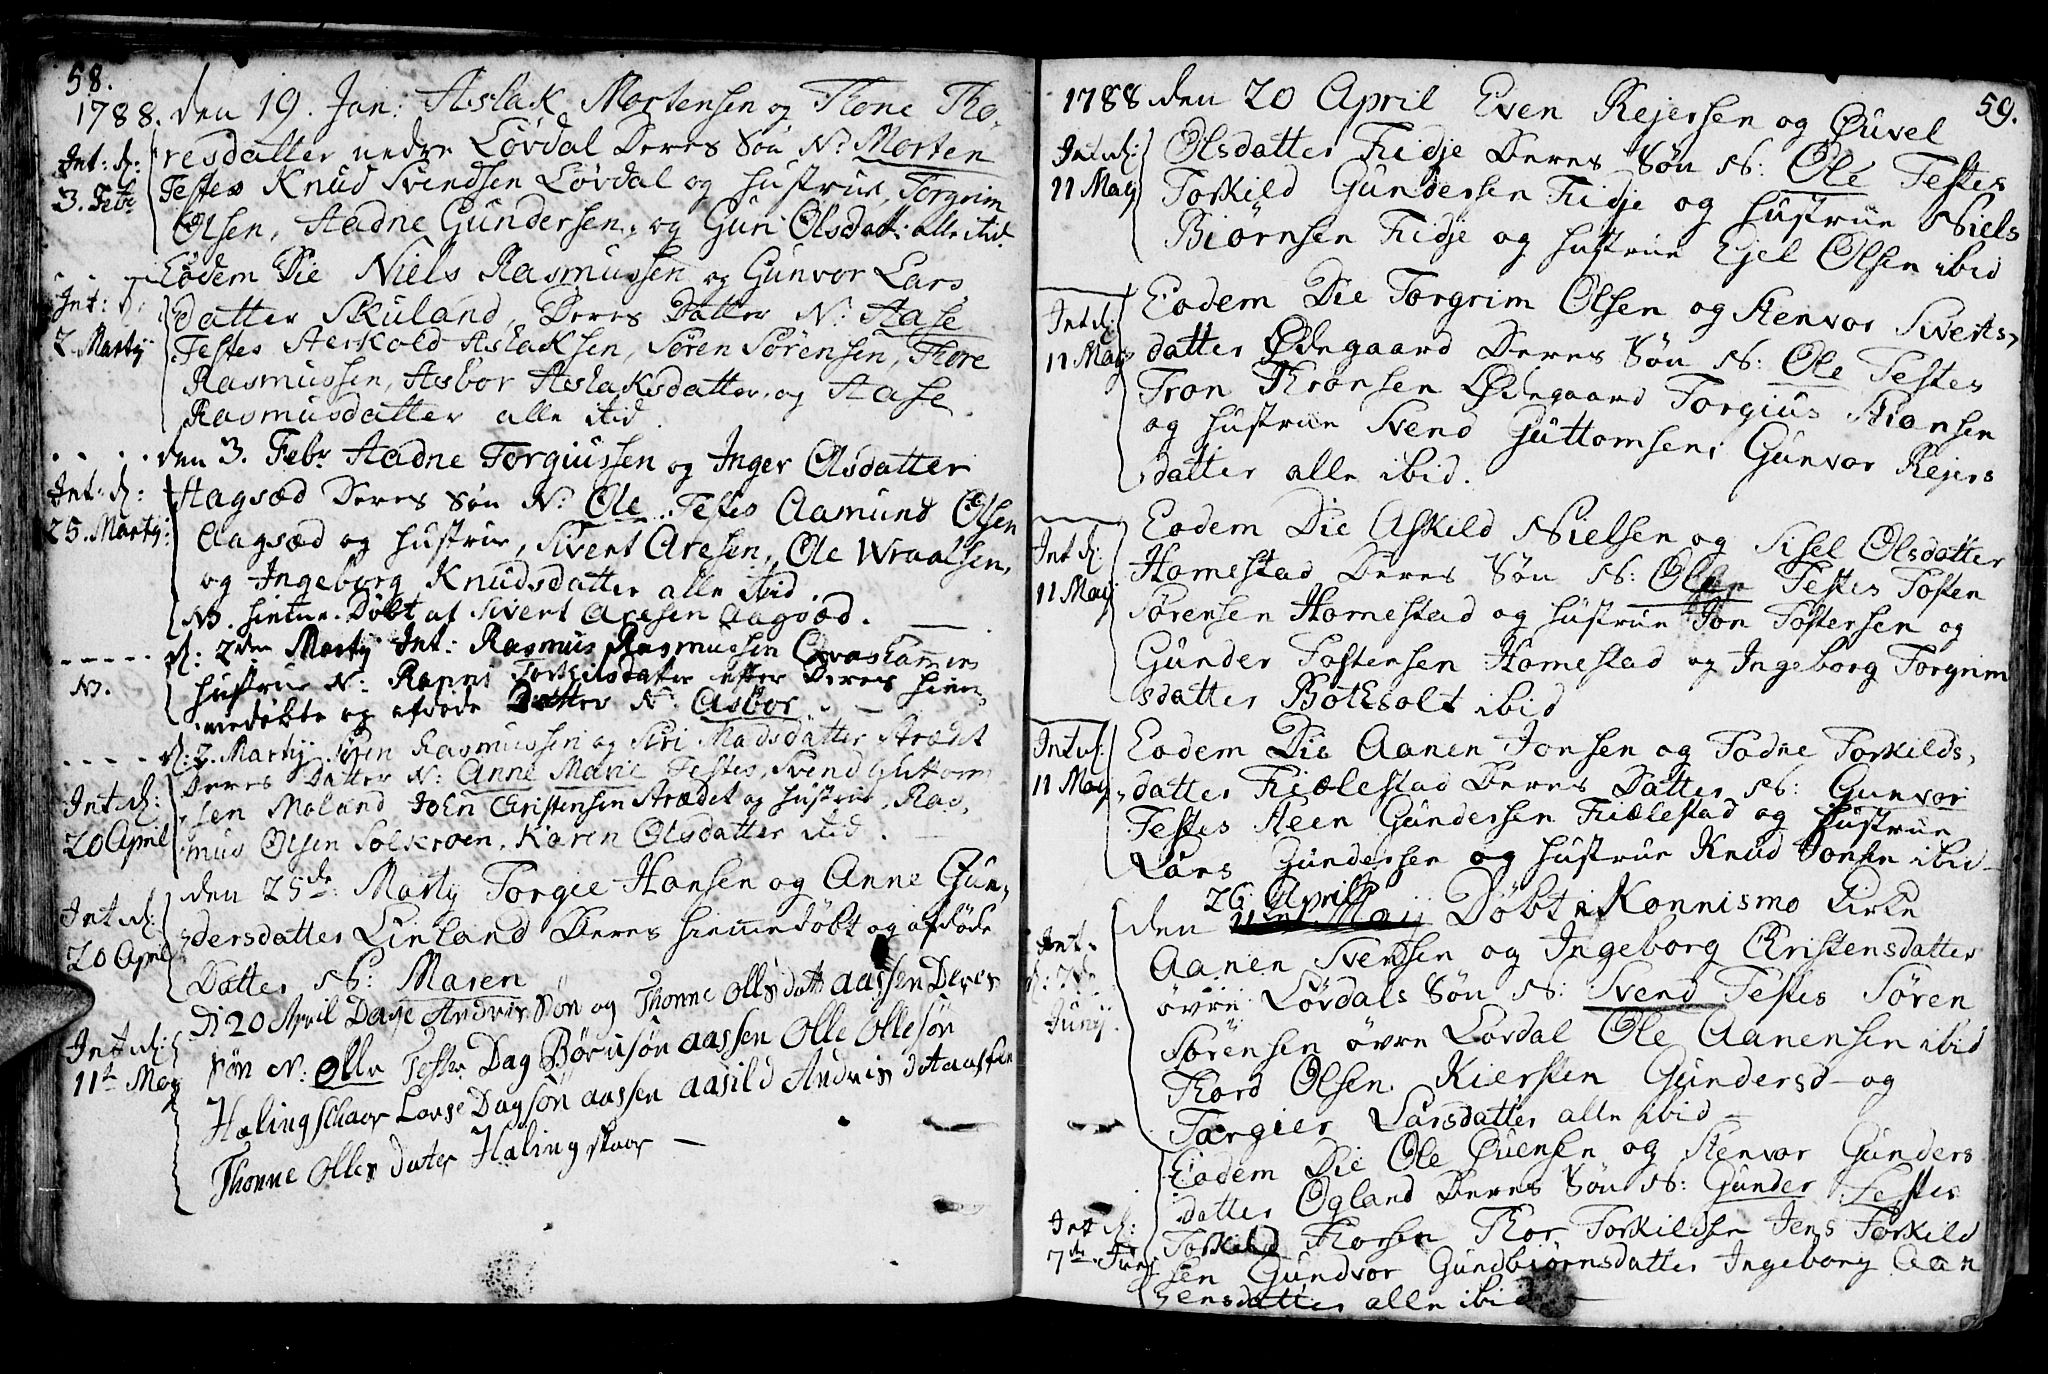 58.
1788. den 19. Jan: Aslak Mortensen og Tone Tho,
resdatter nedre Løvdal Deres Søn N: Morten
Int: d:
3. Febr
Testes Knud Svendsen Løvdal og hustrue, Torgrim
Olsen, Aadne Gundersen, og Guri Olsdatt: alle ibid.
Eodem Die Niels Rasmussen og Gunvor Lars
Int: d:
2. Marty
datter Skuland, Deres Datter N: Aase
Testes Askold Aslaksen, Søren Sörensen, Thore
Rasmussen, Asbor Aslaksdatter, og Aase
Rasmusdatter alle ibid.
den 3. Febr Aadne Torgiussen og Inger Olsdatter
Int: d:
25. Marty:
Aagsæd Deres Søn N: Ole. Testes Aamund Olsen
Aagsæd og hustrue, Sivert Aresen, Ole Wraalsen,
og Ingeborg Knudsdatter alle ibid.
NB. hiemme Døbt af Sivert Aresen Aagsæd.
d: 2den Marty Int: Rasmus Rasmussen
NB.
hustrue N: Ranni Torkilsdatter efter Deres hiem
medøbte og afdøde Datter N: Asbor.
d: 2. Marty. Søren Rasmussen og Siri Madsdatter Strædet
Int d:
20 April
Deres Datter N: Anne Marie Testes, Svend Guttom
sen Moland John Christensen Strædet og hustrue, Ras,
mus Olsen Solkroen, Karen Olsdatter ibid.
den 25de: Marty Torgie Hansen og Anne Gun,
Int d:
20 April
dersdatter Linland Deres hiemmedøbt og afdøde
Datter N: Maren
D 20 April Daye Andris Søn og Thonne Olles datt aassen Deres
Int d:
11t May
Søn N: Olle Testes Dag Børusøn aassen Olle Ollesøn
Halingschaar Larse Dagsøn aassen aasild Andris d Aassen
Thonne Olles dater Halingskaar —
59.
1788 den 20 April Even Rejersen og Guvel
Int d:
11 May
Olsdatter Fidje Deres Søn N: Ole Testes
Torkild Gundersen Fidje og hustrue Niels
Biørnsen Fidje og hustrue Ejel Olsen ibid
Eodem Die Torgrim Olsen og Stenvor Siverts,
Int d:
11 May
datter Ødegaard Deres Søn N: Ole Testes
Tron Thronsen Ødegaard Torgius
og hustrue Svend Guttomsen, Gunvor Rejers
datter alle ibid.
Eodem Die Askild Nielsen og Sisel Olsdatter
Int d:
11 May
Homestad Deres Søn N: Testes Tosten
Sörensen Homestad og hustrue Jon Tostensen og
Gunder Tostensen Homestad og Ingeborg Torgrim
sdatter ibid
Eodem Die Aanen Jonsen og Todne Torkilds,
Int d:
11 May
datter Fiælestad Deres Datter N: Gunvor
Testes Steen Gundersen Fiælestad og hustrue
Lars Gundersen og hustrue Knud Jonsen ibid
26 April
den 11te Maij Døbt i Konnismo Kirke
Int.
d: 7de
Junij.
Aanen Svensen og Ingeborg Christensdatter
övre Lövdals Søn N: Svend Testes Sören
Sörensen övre Lövdal Ole Aanensen ibid
Thord Olsen. Kiersten Gundersd og
Targier Larsdatter alle ibid —
Eodem Die Ole Evensen og Stenvor Gunders
datter Ogland Deres Søn N: Gunder Testes
Int d:
7de Juni
Torkild Thorsen Thor Torkildsen Jens Torkild
sen Gundvor Gundbiørnsdatter Ingeborg Aan
ensdatter alle ibid